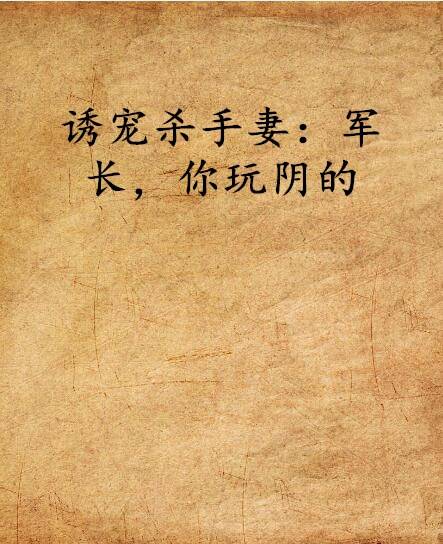 诱宠杀手妻：军
长，你玩阴的